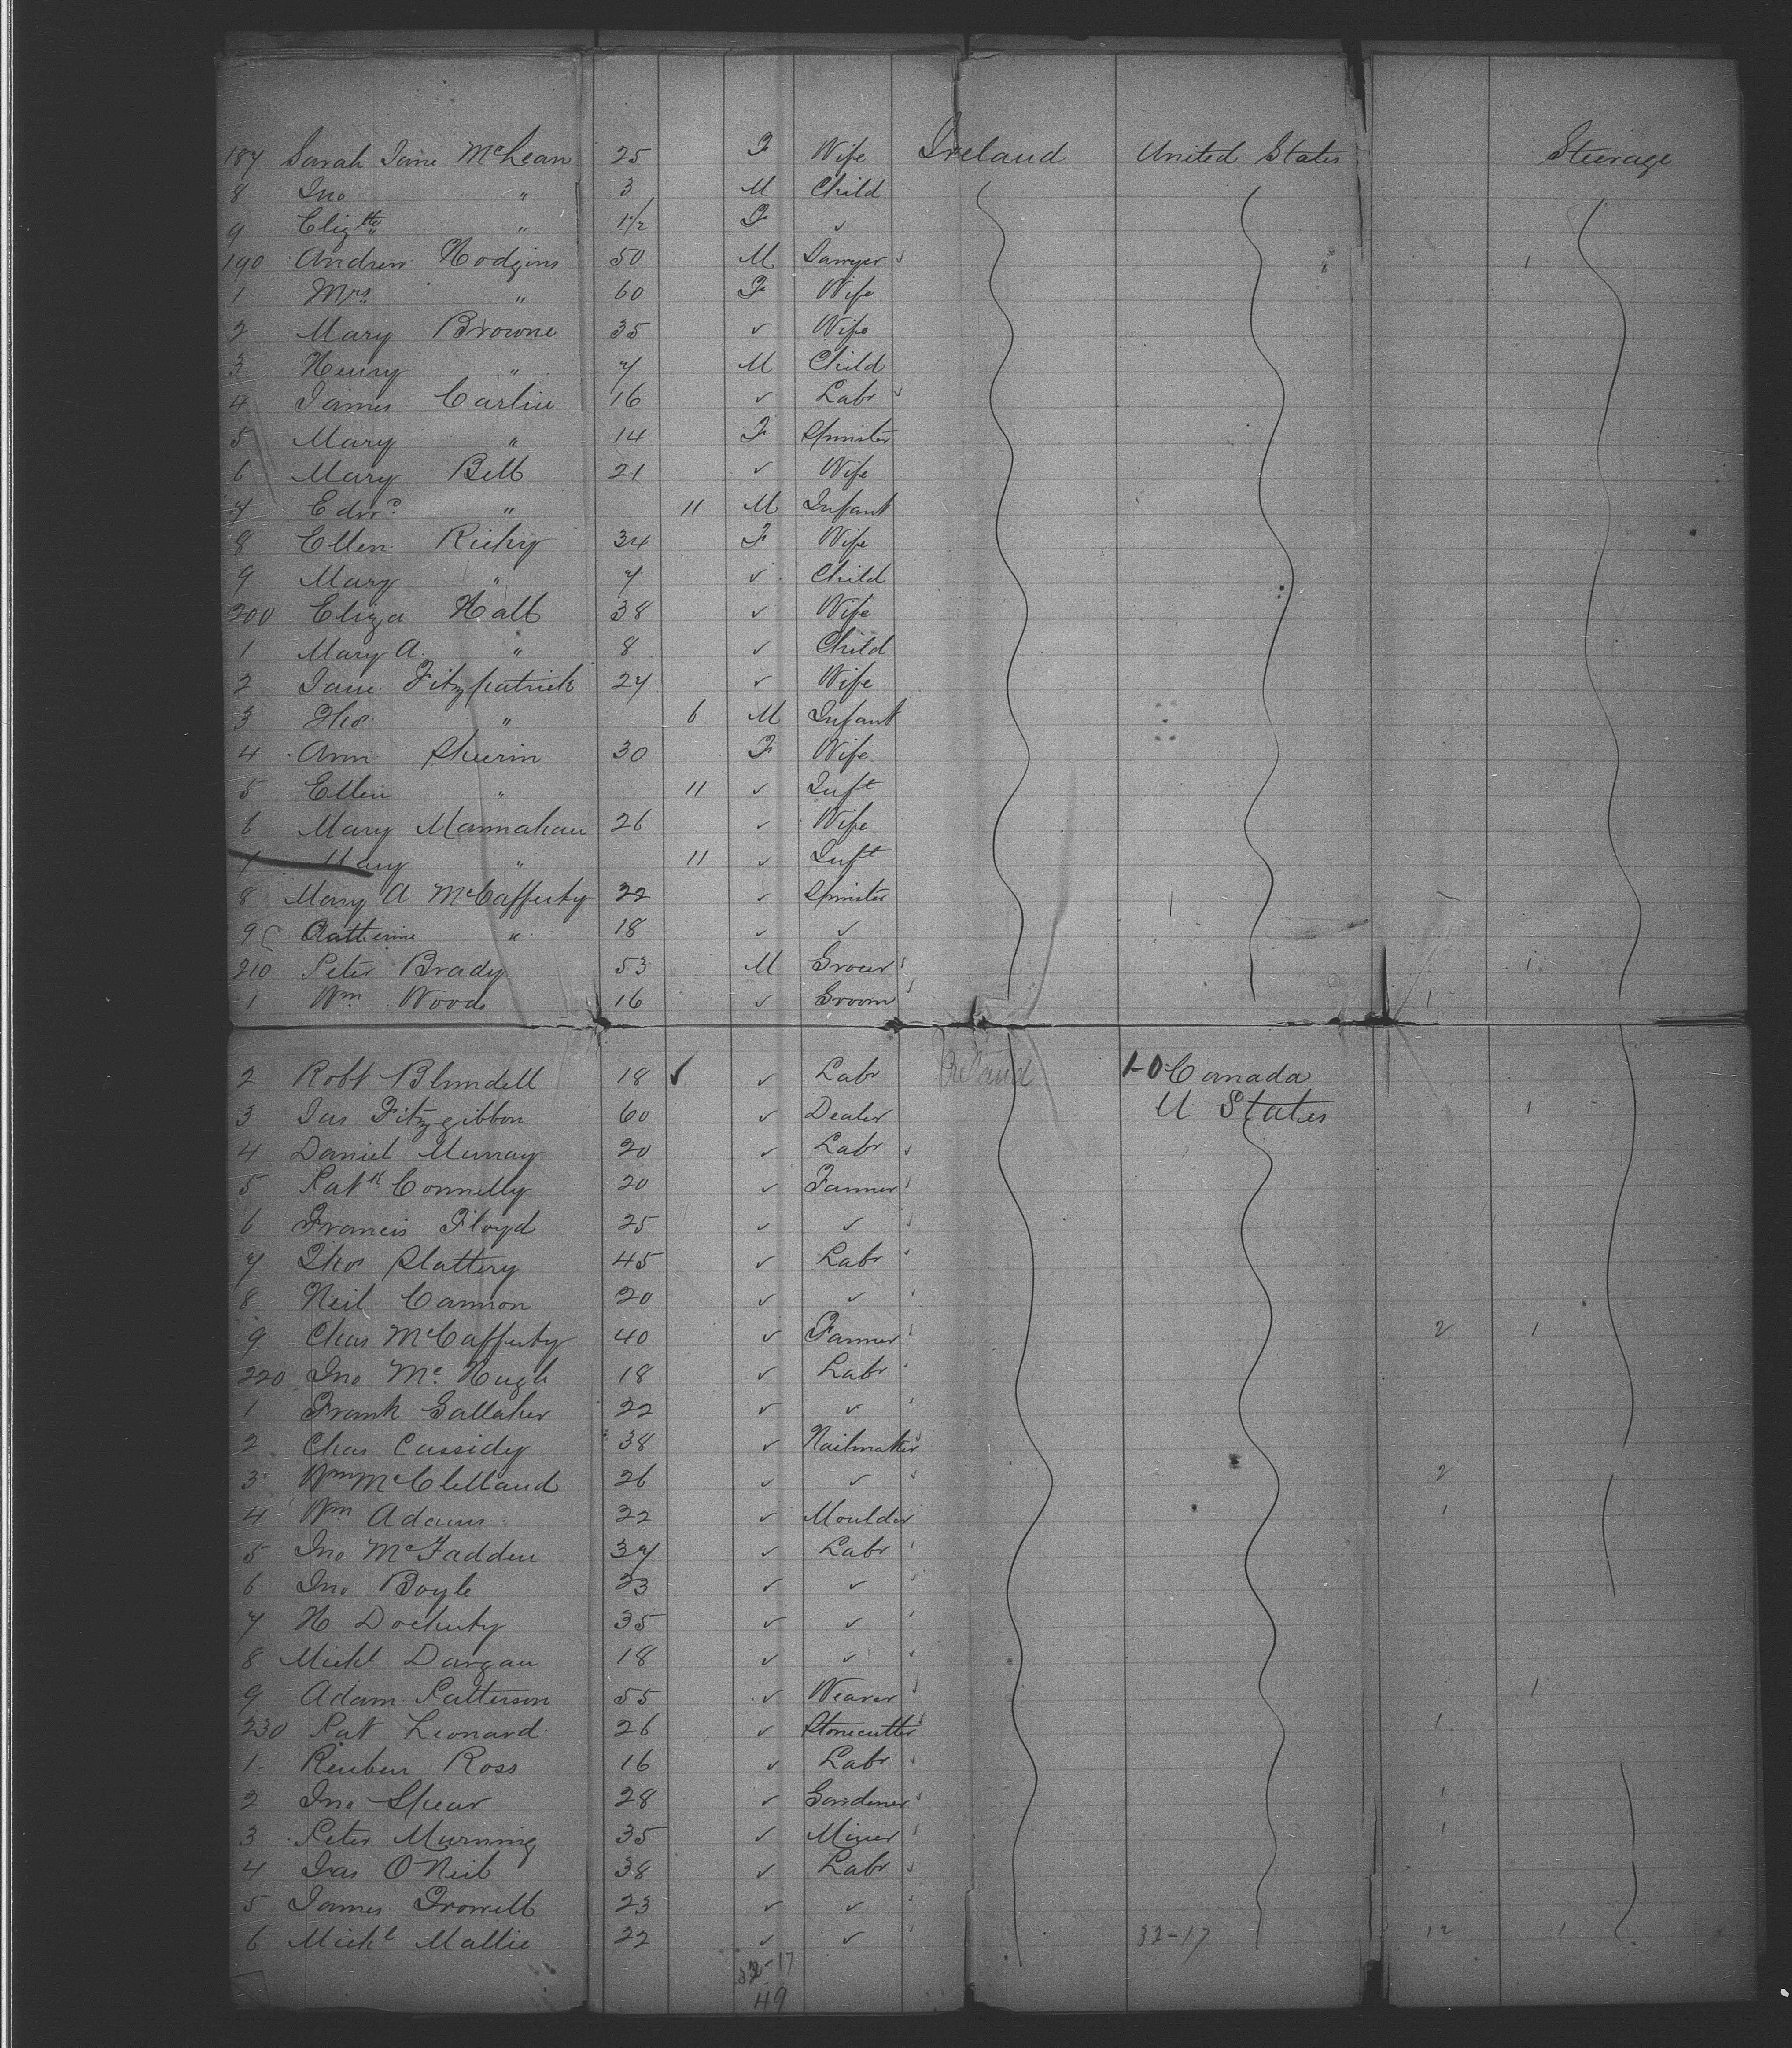 187 Sarah Jane McLean 25 F Wife Ireland United States Steerage
8 Jno " 3 M Child
9 Elizth " 1 1/2 F ✓
190 Andrew Hodgins 50 M Sawyer 1
1 Mrs " 60 F Wife
2 Mary Browne 35 ✓ Wife
3 Henry " 7 M Child
4 James Carlin 16 ✓ Labr
5 Mary " 14 F Spinster
6 Mary Bell 21 ✓ Wife
7 Edwd " 11 M Infant
8 Ellen Richy 34 F Wife
9 Mary " 7 ✓ Child
200 Eliza Hall 38 ✓ Wife
1 Mary A. " 8 ✓ Child
2 Jane Fitzpatrick 27 ✓ Wife
3 Thos " 6 M Infant
4 Ann Skerrin 30 F Wife
5 Ellen " 11 ✓ Inft
6 Mary Mannahan 26 ✓ Wife
7 Mary " 11 ✓ Inft
8 Mary A McCafferty 22 ✓ Spinster
9 Catherine " 18 ✓ ✓
210 Peter Brady 53 M Grocer 1
1 Wm Wood 16 ✓ Groom 1
2 Robt Blundell 18 ✓ ✓ Labr Ireland 1-0 Canada
3 Jas Fitzgibbon 60 ✓ Dealer U States 1
4 Daniel Murray 20 ✓ Labr
5 Patk Connelly 20 ✓ Farmer
6 Francis Floyd 25 ✓ ✓
7 Thos Slattery 45 ✓ Labr
8 Neil Cannon 20 ✓ ✓
9 Chas McCafferty 40 ✓ Farmer 2 1
220 Jno Mc Hugh 18 ✓ Labr
1 Frank Gallaher 22 ✓ ✓
2 Chas Cassidy 38 ✓ Nailmaker
3 Wm McClelland 26 ✓ ✓ 2
4 Wm Adams 32 ✓ Moulder 1
5 Jno McFadden 37 ✓ Labr
6 Jno Boyle 23 ✓ ✓
7 H Docherty 35 ✓ ✓
8 Michl Dargan 18 ✓ ✓
9 Adam Patterson 55 ✓ Weaver 1
230 Pat Leonard 26 ✓ Stonecutter 1
1 Reuben Ross 16 ✓ Labr
2 Jno Spear 28 ✓ Gardener 1
3 Peter Murning 35 ✓ Miner 1
4 Jas O Neil 38 ✓ Labr
5 James Trowell 23 ✓ ✓
6 Michl Mallie 22 ✓ ✓ 32-17 12 1
32-17
49